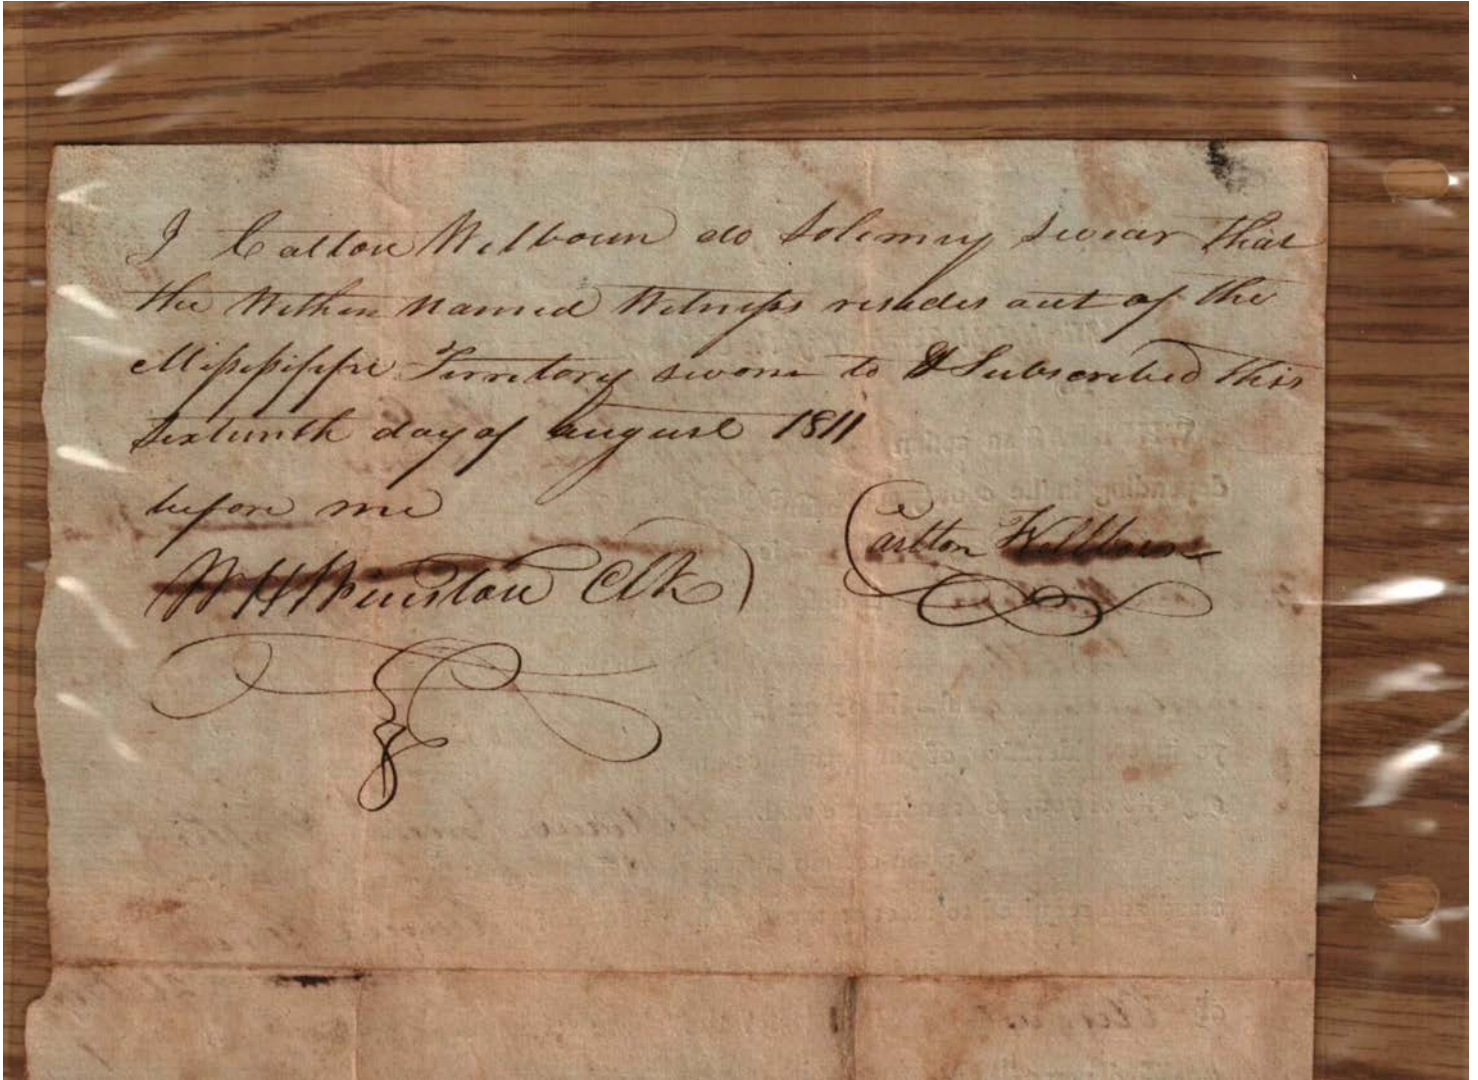 I Calton Welboun do Solemny swear that
the Within Named Witness resides out of the
Mississippi Territory sworn to & Subscribed this
sixteenth day of August 1811
before me
Carlton Wellborn
W H Winston Clk